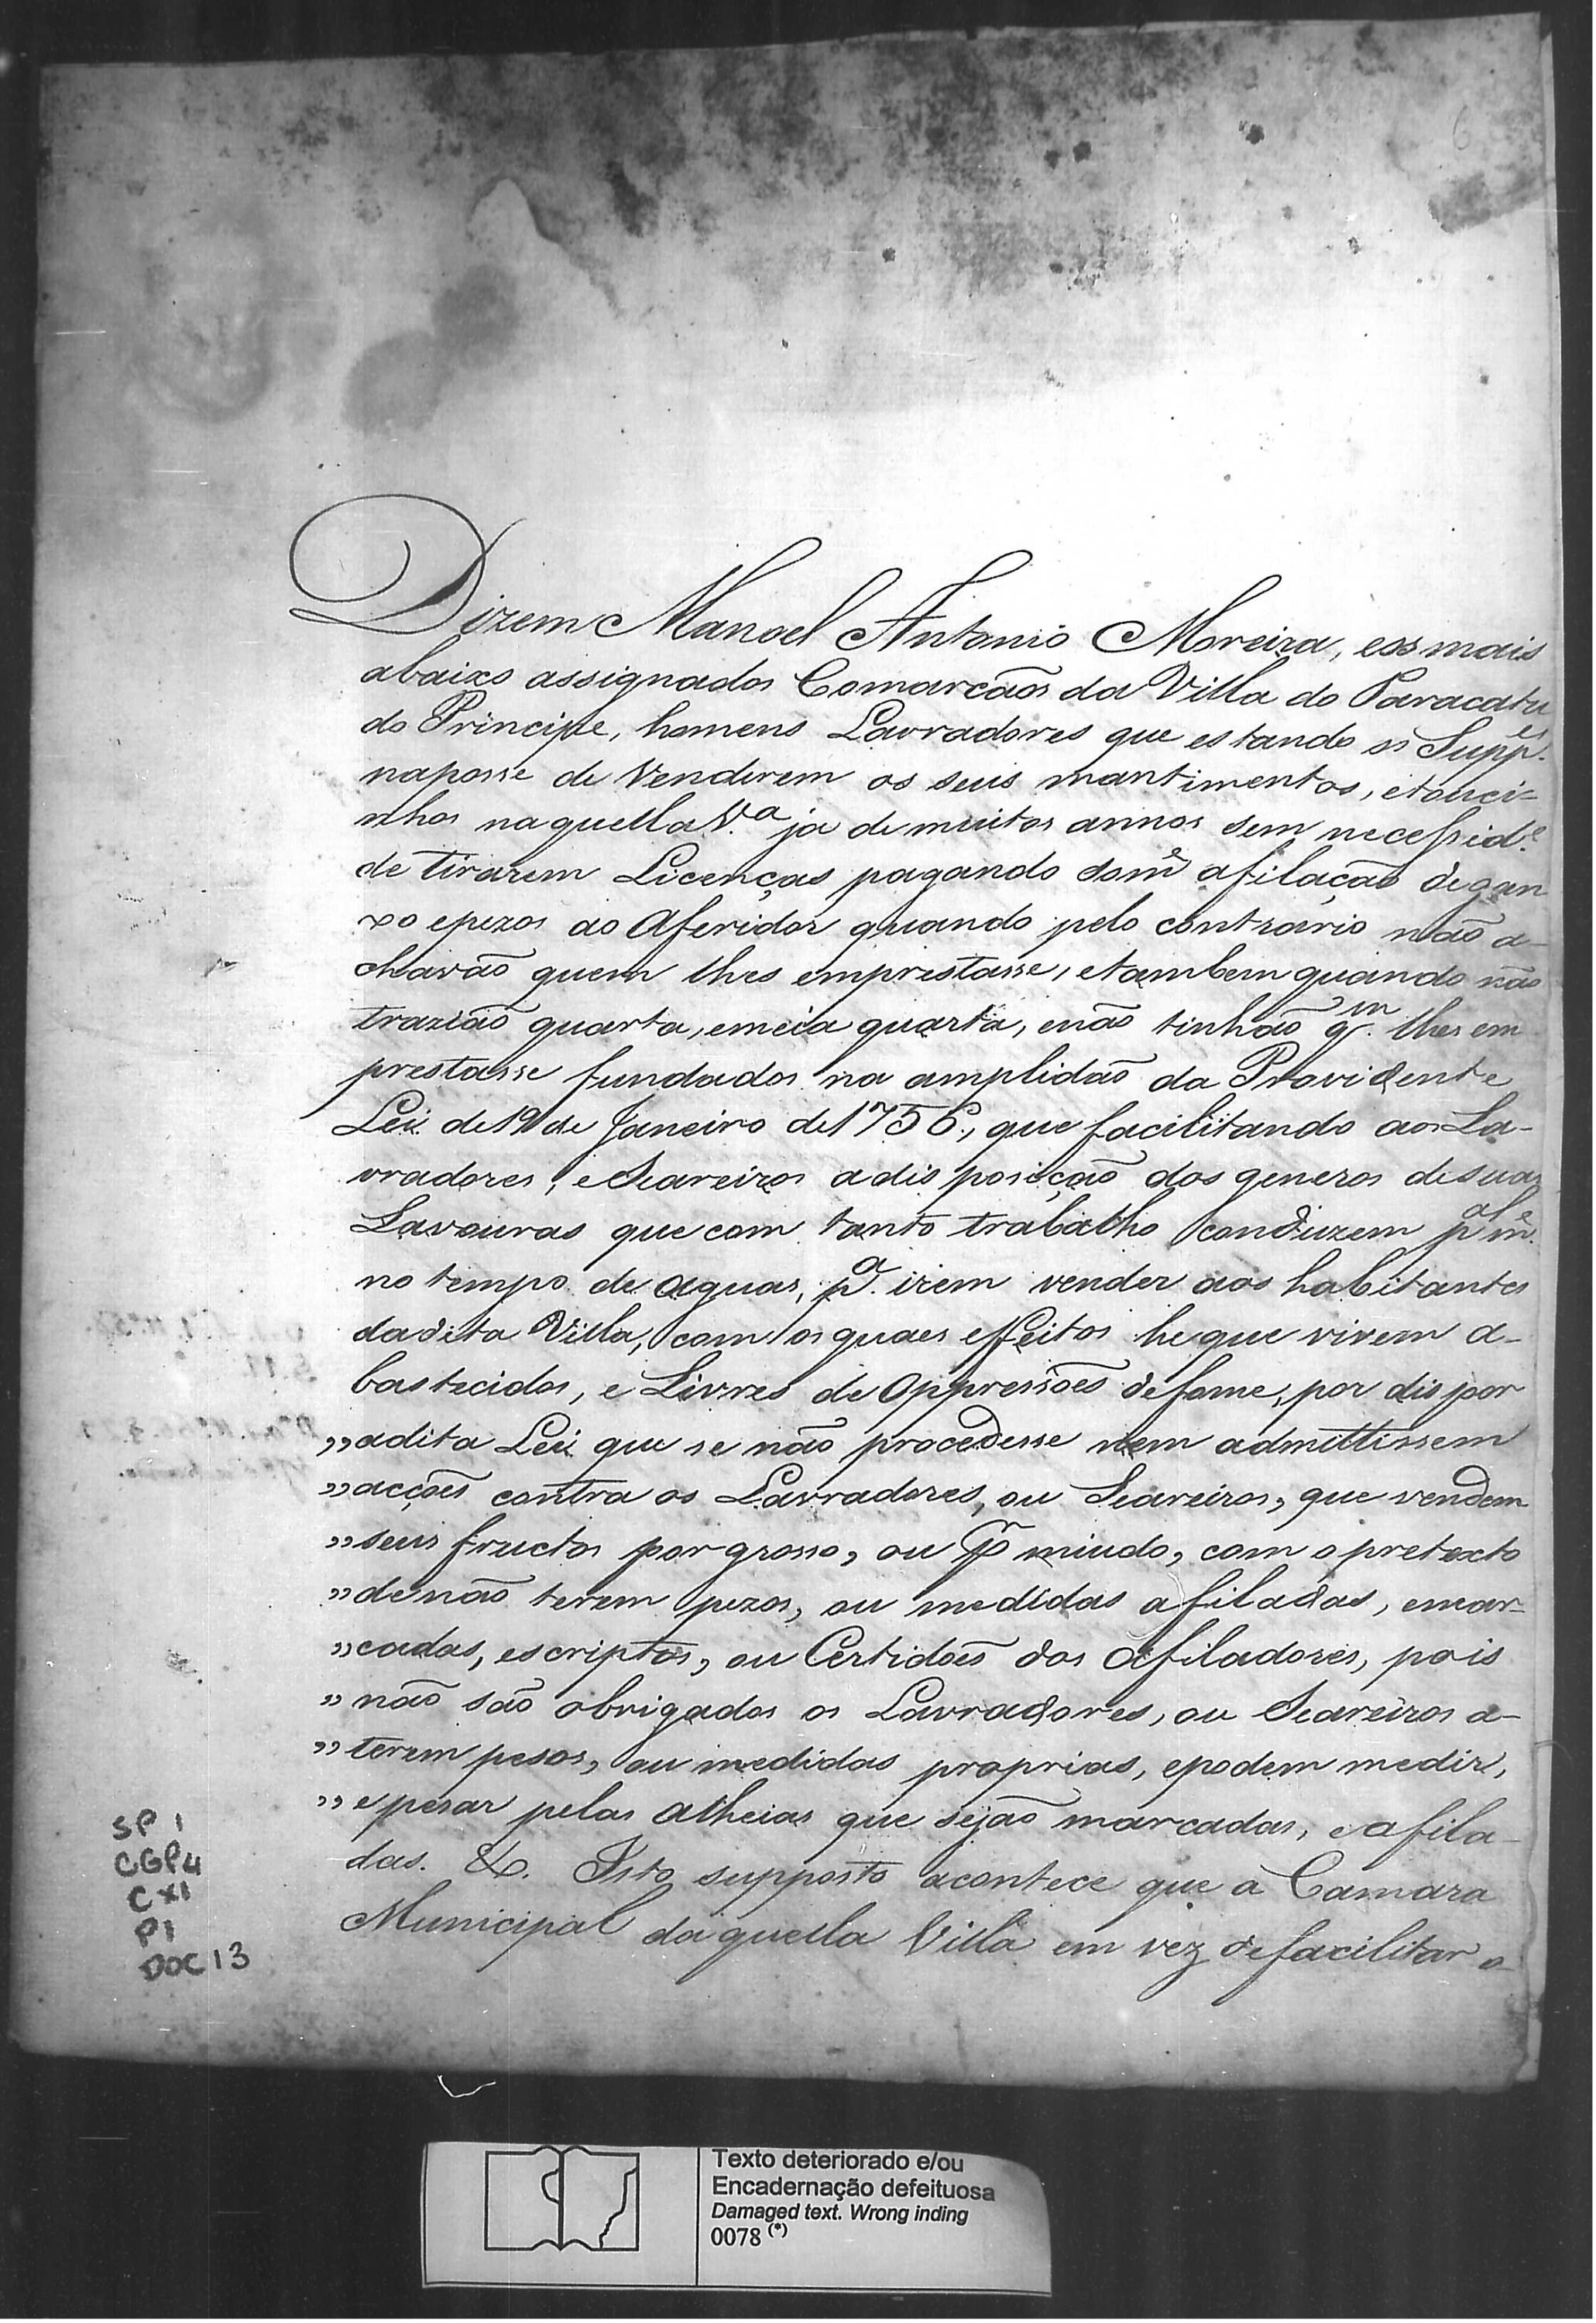 6
Dizem Manoel Antonio Moreira, e os mais
abaixo assignados Comarcãos da Villa do Paracatu
do Principe, homens Lavradores que estando os Supp.es
na posse de Venderem os seus mantimentos, e touci-
nhos naquella V.a ja de muitos annos sem necessid.e
de tirarem Licenças pagando som.e afilação de gan
xo e pezos ao Aferidor quando pelo contrario não a-
chavão quem lhes emprestasse, e tambem quando não
trazião quarta, e meia quarta, e não tinhão q.m lhes em
prestasse fundados na amplidão da Providente
Lei de 19 de Janeiro de 1756, que facilitando aos La-
vradores, e Seareiros a disposição dos generos de suas
Lavouras que com tanto trabalho conduzem p.al m.e
no tempo de aguas, p.a irem vender aos habitantes
da dita Villa, com os quaes effeitos he que vivem a-
bastecidos, e Livres de Oppressões de fome, por dispor
"a dita Lei que se não procedesse nem admittissem
"acções contra os Lavradores, ou Seareiros, que vendem
"seus fructos por grosso, ou p.r miudo, com o pretexto
"de não terem pezos, ou medidas afiladas, e mar-
"cadas, escriptos, ou Certidões dos Afiladores, pois
"não são obrigados os Lavradores, ou Seareiros a-
"terem pesos, ou medidas proprias, e podem medir,
"e pesar pelas alheias que sejão marcadas, e afila-
das. &. Isto supposto acontece que a Camara
Municipal daquella Villa em vez de facilitar a-
SP 1
CGP4
CX1
P1
DOC 13
Texto deteriorado e/ou
Encadernação defeituosa
Damaged text. Wrong inding
0078 (*)